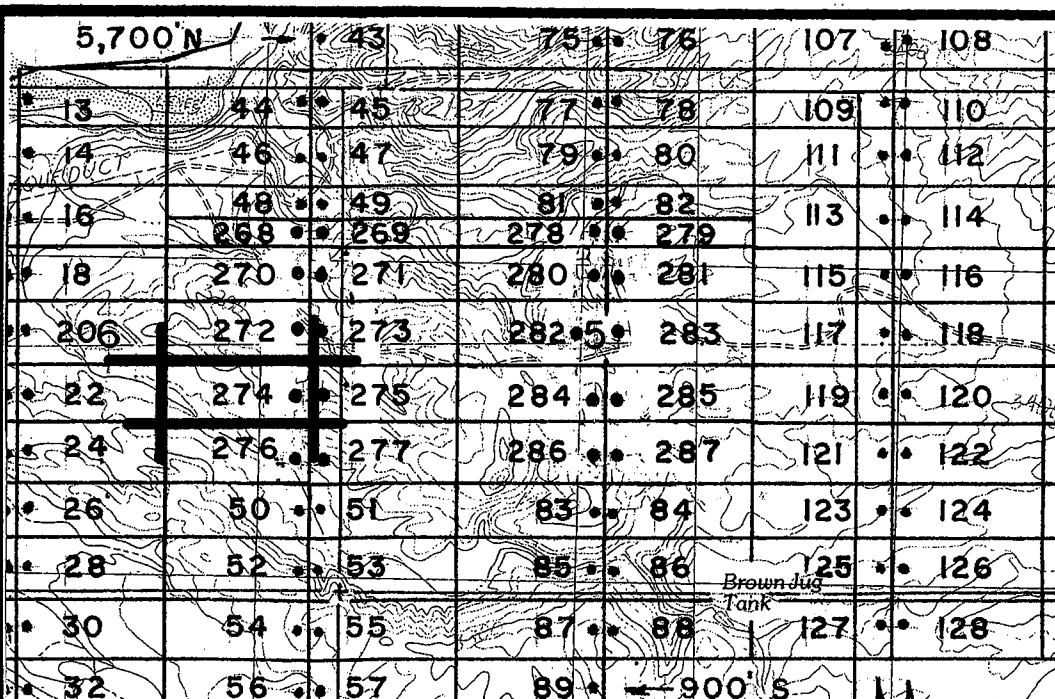 5,700' N 43 75 76 107 108
13 44 45 77 78 109 110
14 46 47 79 80 111 112
AQUEDUCT
16 48 49 81 82 113 114
268 269 278 279
18 270 271 280 281 115 116
206 272 273 282 5 283 117 118
22 274 275 284 285 119 120
24 276 277 286 287 121 122
26 50 51 83 84 123 124
28 52 53 85 86 125 126
Brown Jug
Tank
30 54 55 87 88 127 128
32 56 57 89 900' S